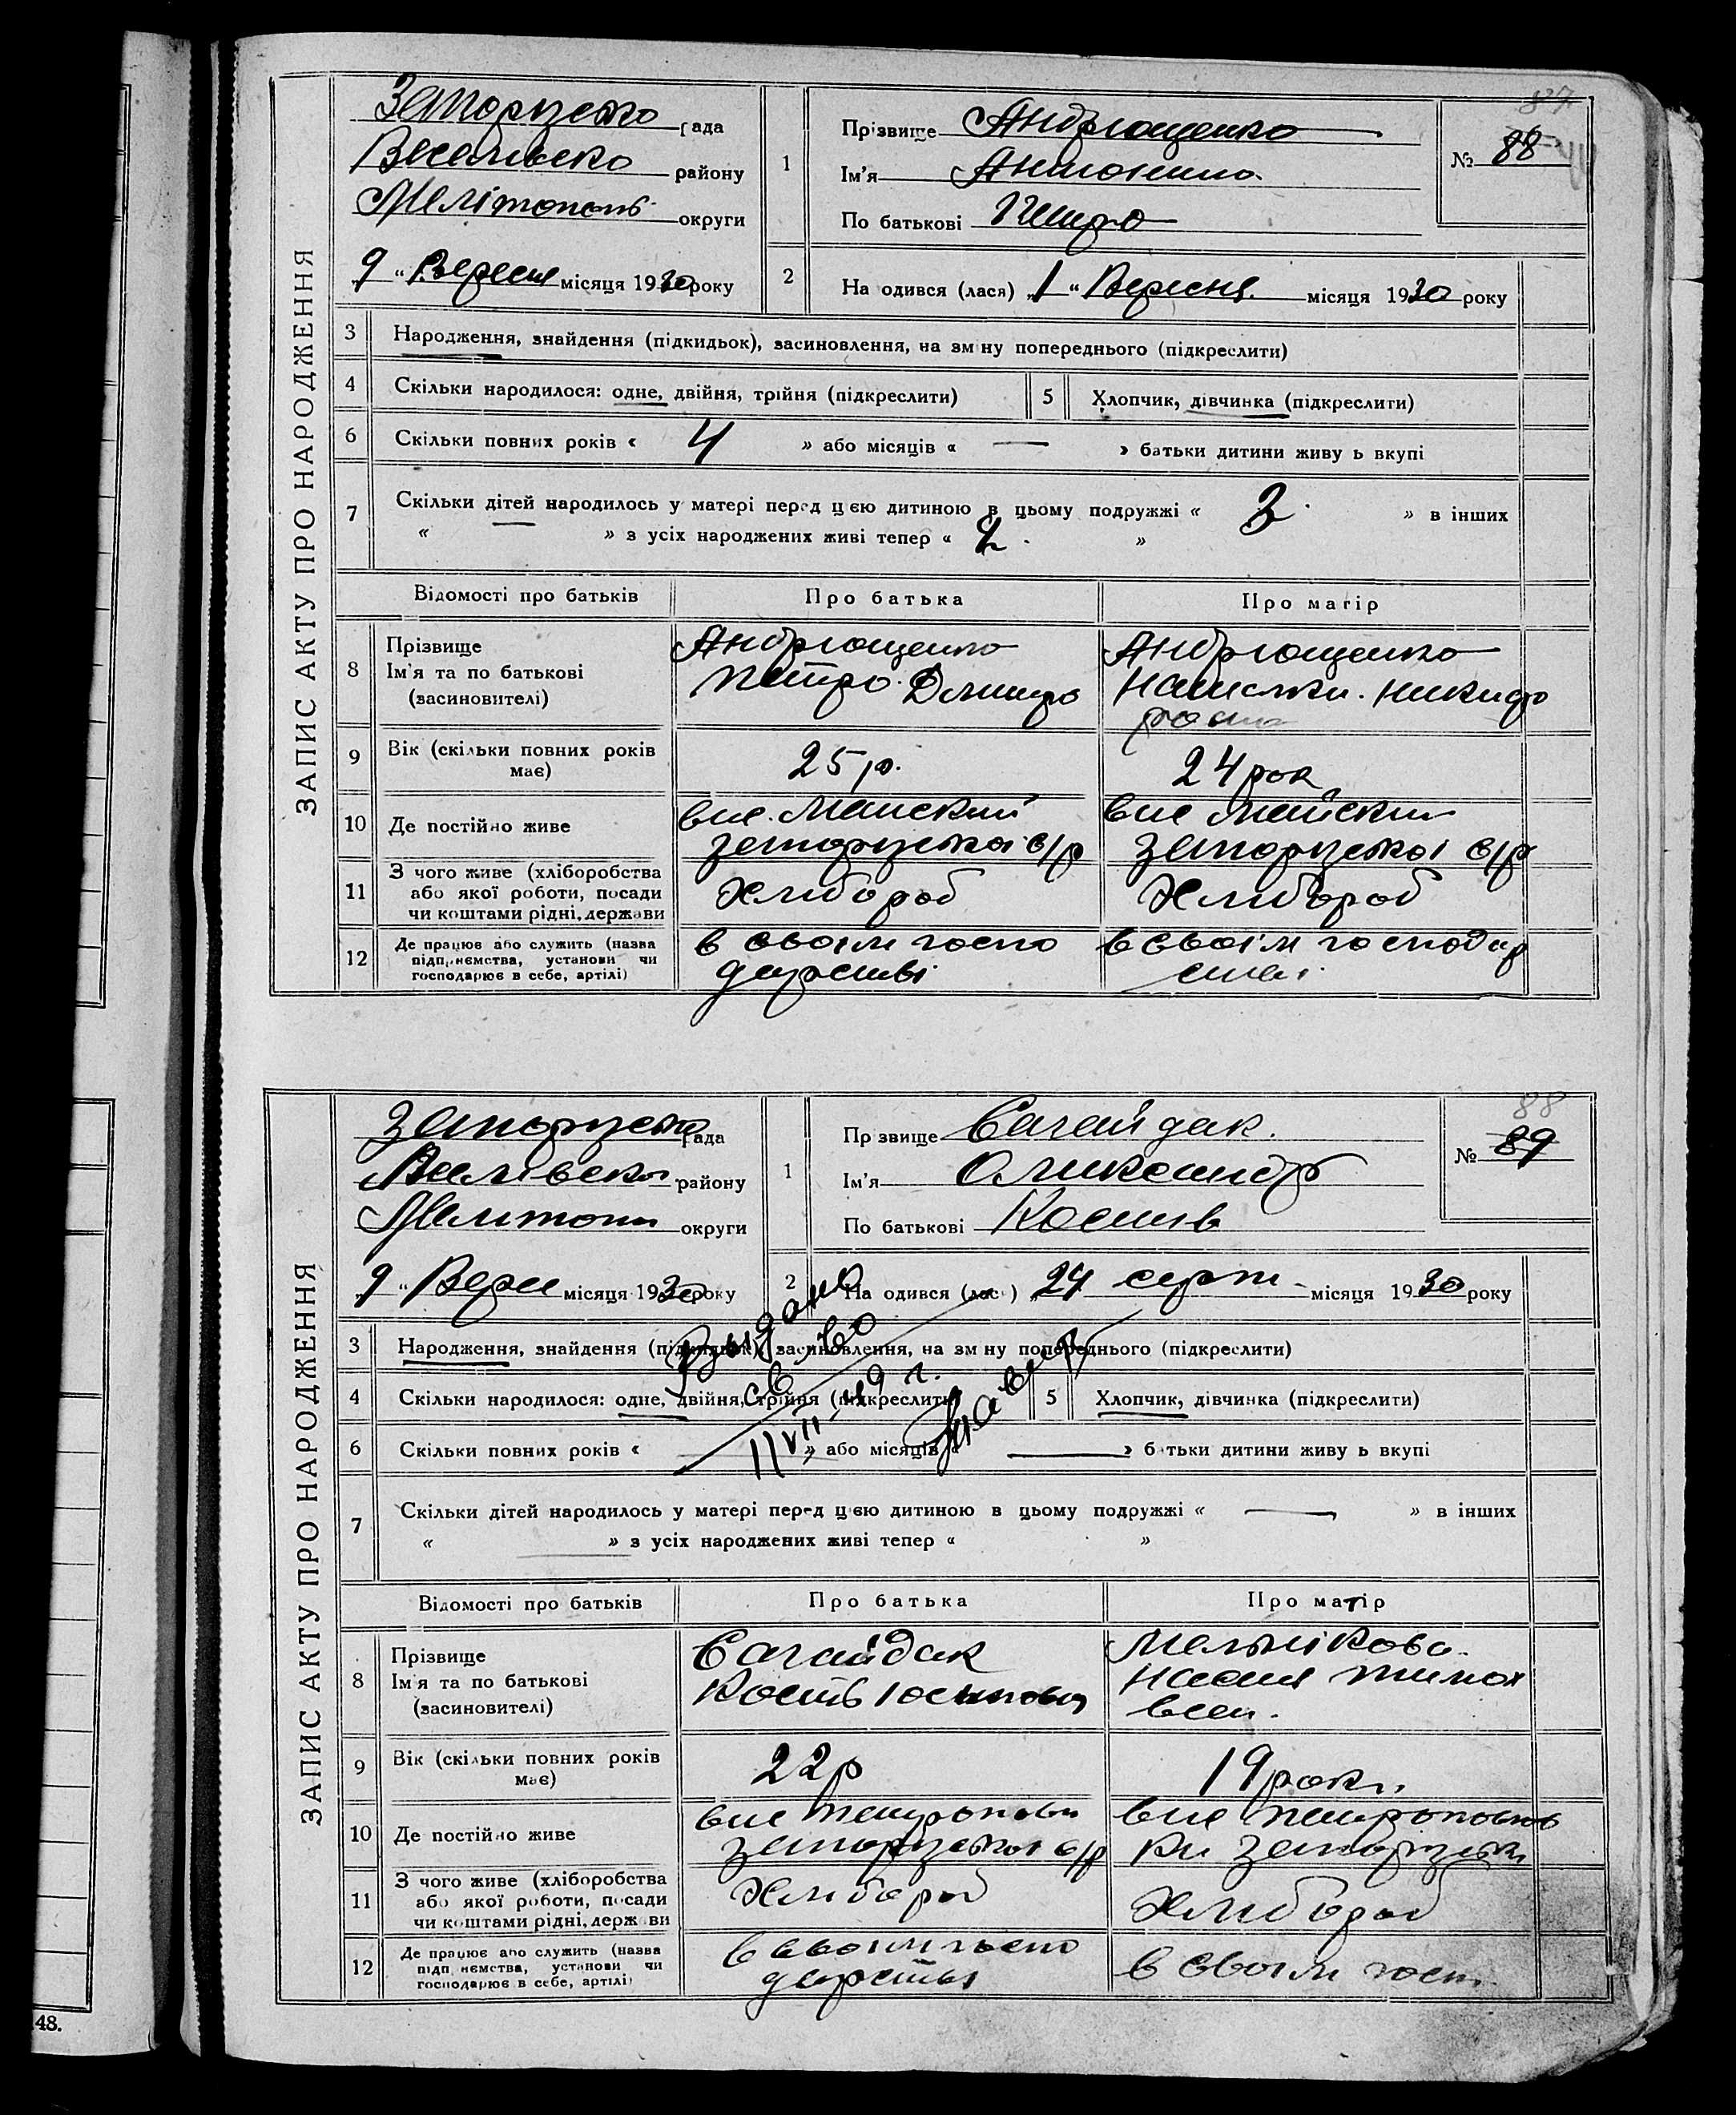 ЗАПИС АКТУ ПРО НАРОДЖЕННЯ
87
Запорізька рада
Веселівсько району
Мелітополь округи
9 " Вересня місяця 1930 року
1
Прізвище Андрющенко
Ім'я Антонина
По батькові Петро
№ 88
2
На одився (лася) „1 " Вересня місяця 1930 року
3 Народження, знайдення (підкидьок), засиновлення, на зм ну попереднього (підкреслити)
4 Скільки народилося: одне, двійня, трійня (підкреслити)
5 Хлопчик, дівчинка (підкреслити)
6 Скільки повних років « 4 » або місяців « — » батьки дитини живу ь вкупі
7 Скільки дітей народилось у матері перед цією дитиною в цьому подружжі « 3 » в інших
« » з усіх народжених живі тепер « 2 »
Відомості про батьків Про батька Про матір
8 Прізвище
Ім'я та по батькові
(засиновителі)
Андрющенко
Петро Дмитро
Андрющенко
Наталка Никифо
ровна
9 Вік (скільки повних років
має)
25 р.
24 рок
10 Де постійно живе
вис. Майский
запорізької с/р
вис Майский
Запорізької с/р
11 З чого живе (хліборобства
або якої роботи, посади
чи коштами рідні, держави
Хлибороб
Хлибороб
12 Де працює або служить (назва
підприємства, установи чи
господарює в себе, артілі)
в своїм госпо
дарстві
в своїм господар
стві
ЗАПИС АКТУ ПРО НАРОДЖЕННЯ
88
Запорізька рада
Веселівська району
Мелитопол округи
9 " Верес місяця 1930 року
1
Пр звище Сагайдак
Ім'я Олександр
По батькові Костів
№ 89
2
На одився (лася) „24 серпн місяця 1930 року
3 Народження, знайдення (підкидьок), засиновлення, на зм ну попереднього (підкреслити)
4 Скільки народилося: одне, двійня, трійня (підкреслити)
5 Хлопчик, дівчинка (підкреслити)
Выдано
св-во
11 VII 49 г.
6 Скільки повних років « » або місяців « — » батьки дитини живу ь вкупі
7 Скільки дітей народилось у матері перед цією дитиною в цьому подружжі « — » в інших
« » з усіх народжених живі тепер « »
Відомості про батьків Про батька Про матір
8 Прізвище
Ім'я та по батькові
(засиновителі)
Сагайдак
Кость Юсипович
Мельнікова
Настя Тимох
веєв.
9 Вік (скільки повних років
має)
22 р
19 рокі.
10 Де постійно живе
вис Петропавлі
запорізької с/р
вис Петропавлов
ки Запорізьк
11 З чого живе (хліборобства
або якої роботи, посади
чи коштами рідні, держави
Хлибороб
Хлибороб
12 Де працює або служить (назва
підприємства, установи чи
господарює в себе, артілі)
в своїм госпо
дарстві
в своїм госп.
48.